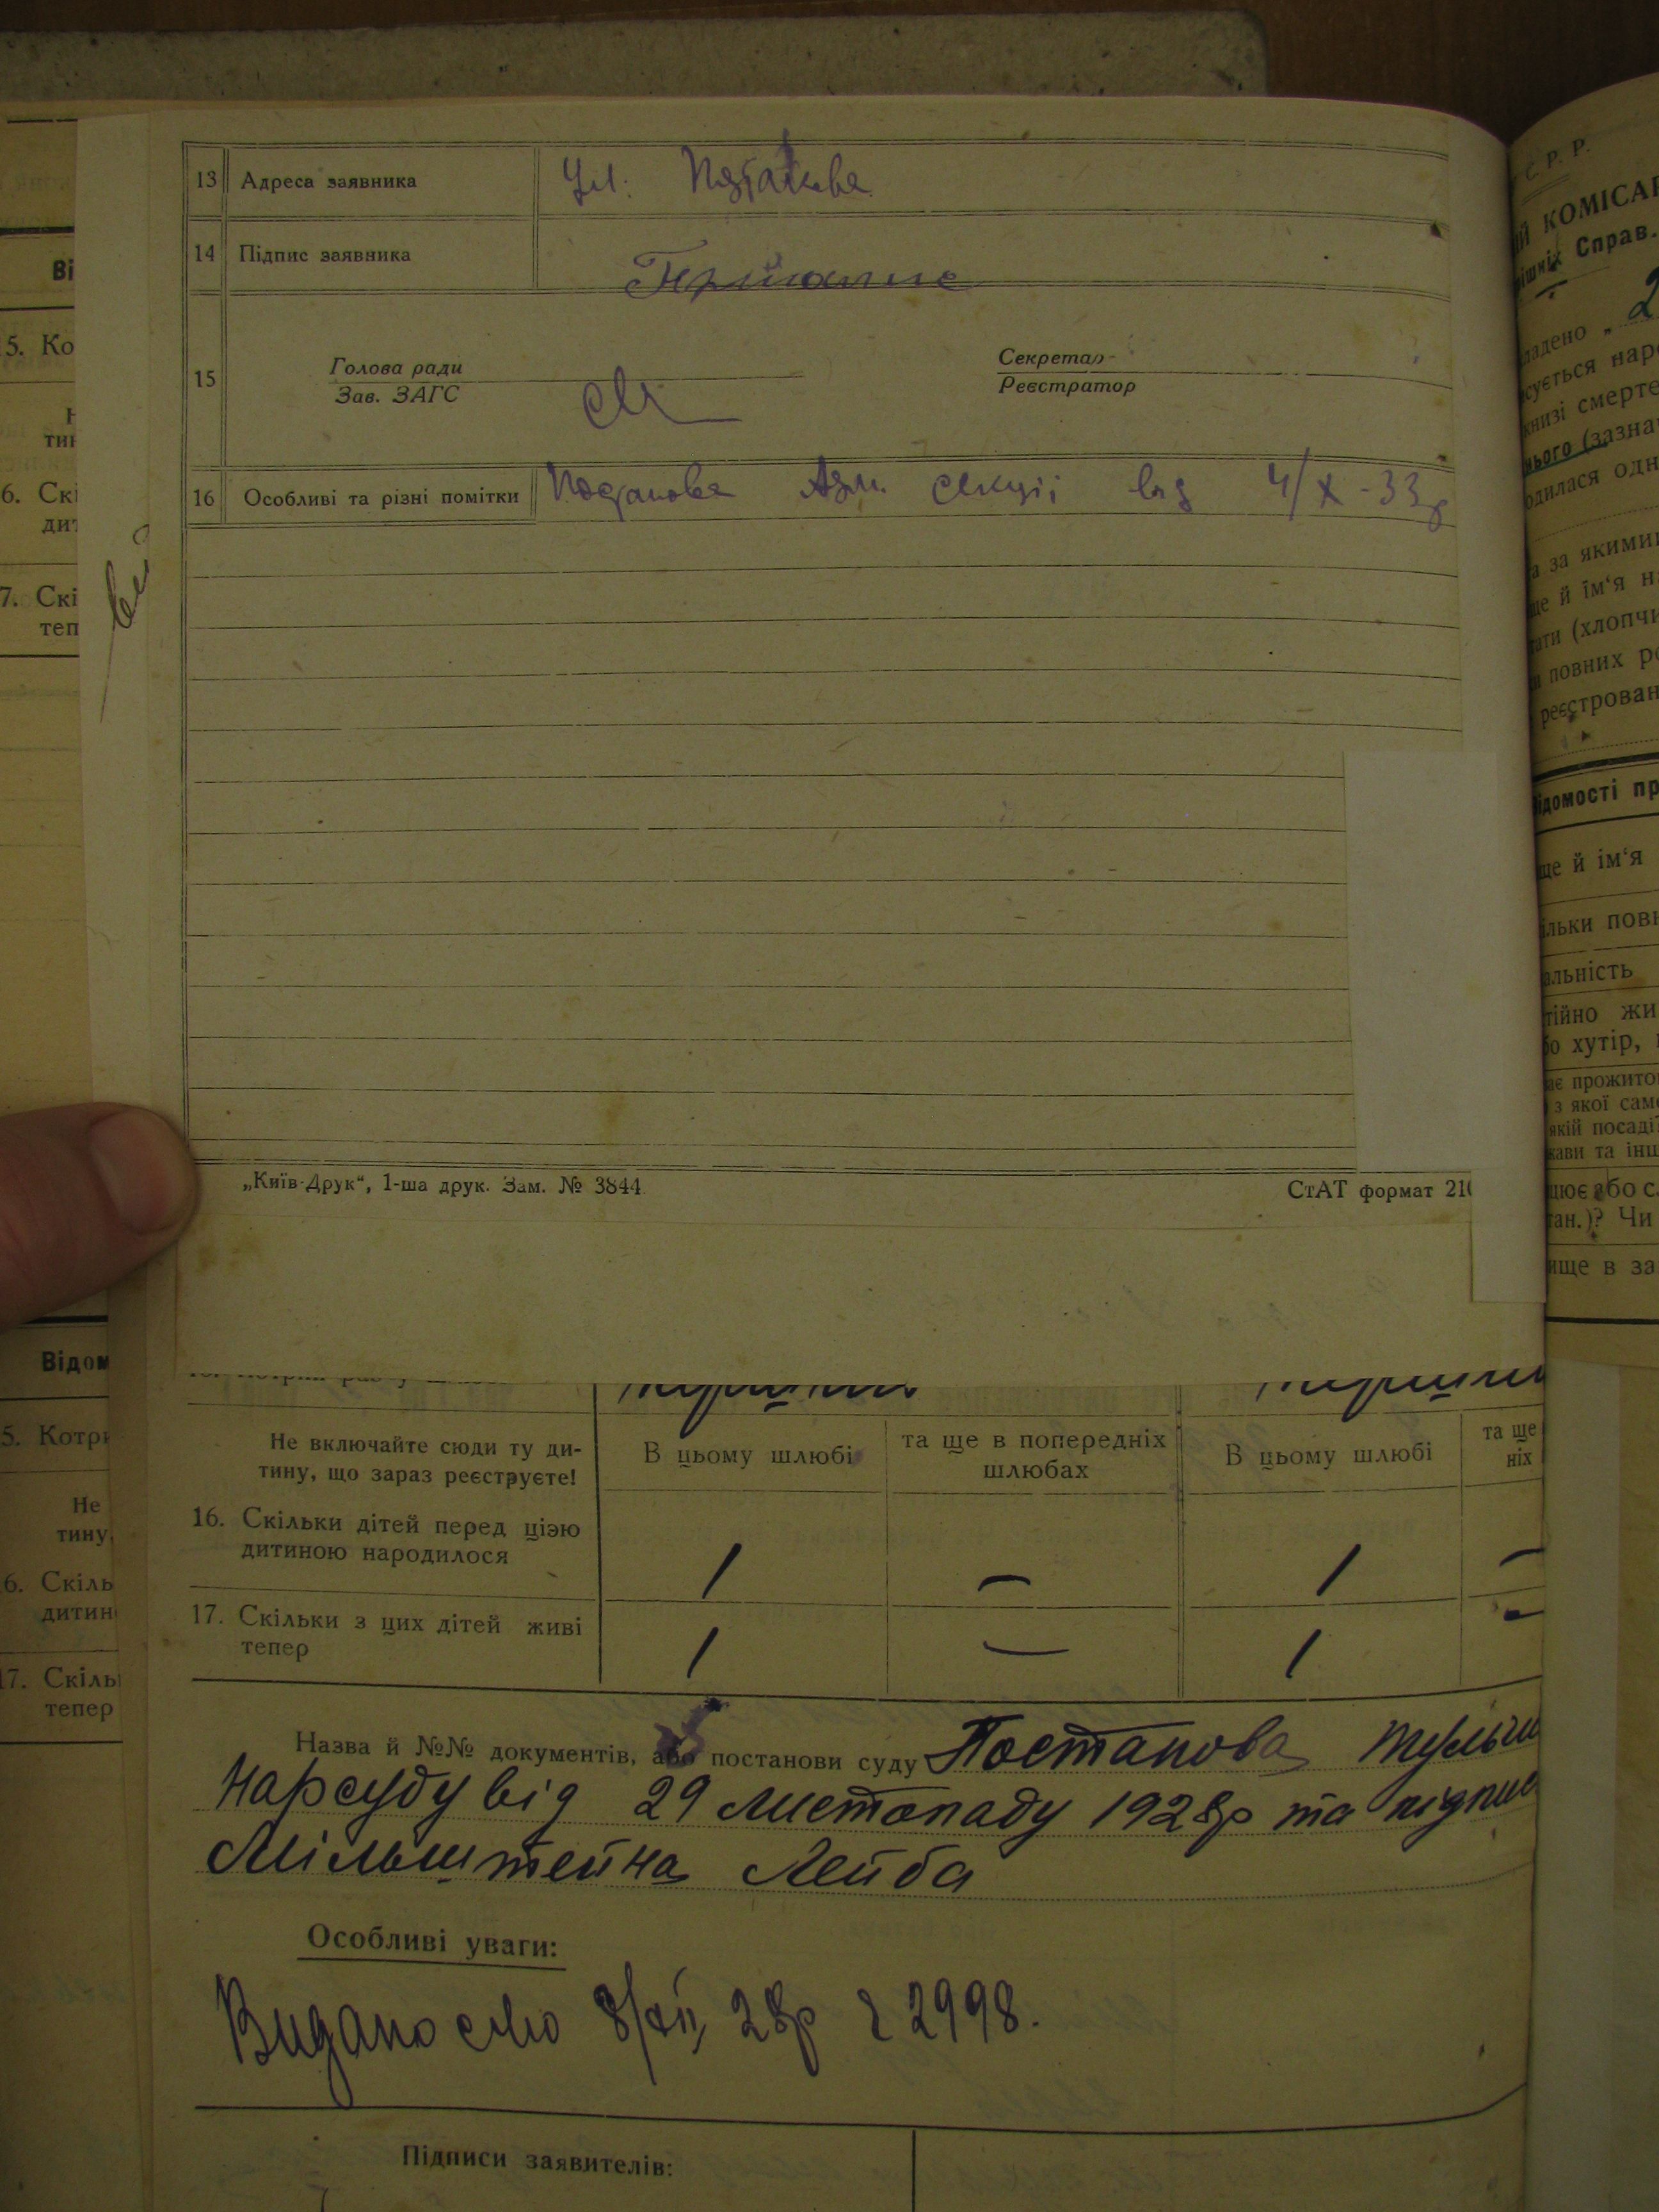 13 Адреса заявника Ул.
14 Підпис заявника
15 Голова ради
Зав. ЗАГС
Секретар
Реєстратор
16 Особливі та різні помітки Постанова Адм. секції від 4/X-33р
„Київ-Друк“, 1-ша друк. Зам. № 3844
СтАТ формат 210
Не включайте сюди ту ди-
тину, що зараз реєструєте!
В цьому шлюбі
та ще в попередніх
шлюбах
В цьому шлюбі
та ще
ніх
16. Скільки дітей перед цією
дитиною народилося
1 — 1 —
17. Скільки з цих дітей живі
тепер
1 — 1 —
Назва й №№ документів, або постанови суду Постанова
Нарсуду від 29 листопаду 1928р та
Мільштейна Лейба
Особливі уваги:
Видано 8/XII, 28р 2998.
Підписи заявителів:
С. Р. Р.
КОМІСАР
Справ.
книзі смерте
нього (зазна
а за якими
ще й їм‘я н
(хлопчи
повних р
реєстрован
ідомості пр
ще й ім‘я
ільки повн
альність
тійно жи
бо хутір,
ає прожито
з якої сам
якій посаді
ави та інш
цює або сл
тан.)? Чи
ище в за
Ві
5. Ко
тин
6. Скі
дит
7. Скі
теп
Відом
5. Котри
Не
тину,
6. Скіль
дитин
17. Скіль
тепер